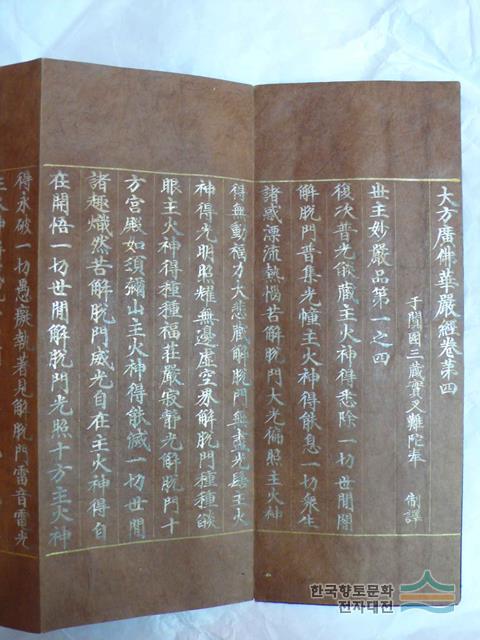 大方廣佛華嚴經卷第四
于闐國三藏實叉難陁奉 制譯
世主妙嚴品第一之四
復次普光燄藏主火神得悉除一切世間闇
解脫門普集光幢主火神得能息一切衆生
諸惑漂流熱惱苦解脫門大光徧照主火神
得無動福力大悲藏解脫門無盡光髻主火
神得光明照耀無邊虛空界解脫門種種燄
眼主火神得種種福莊嚴寂靜光解脫門十
方宮殿如須彌山主火神得能滅一切世間
諸趣熾然苦解脫門威光自在主火神得自
在開悟一切世間解脫門光照十方主火神
得永破一切愚癡執著見解脫門雷音電光
한국향토문화
전자대전